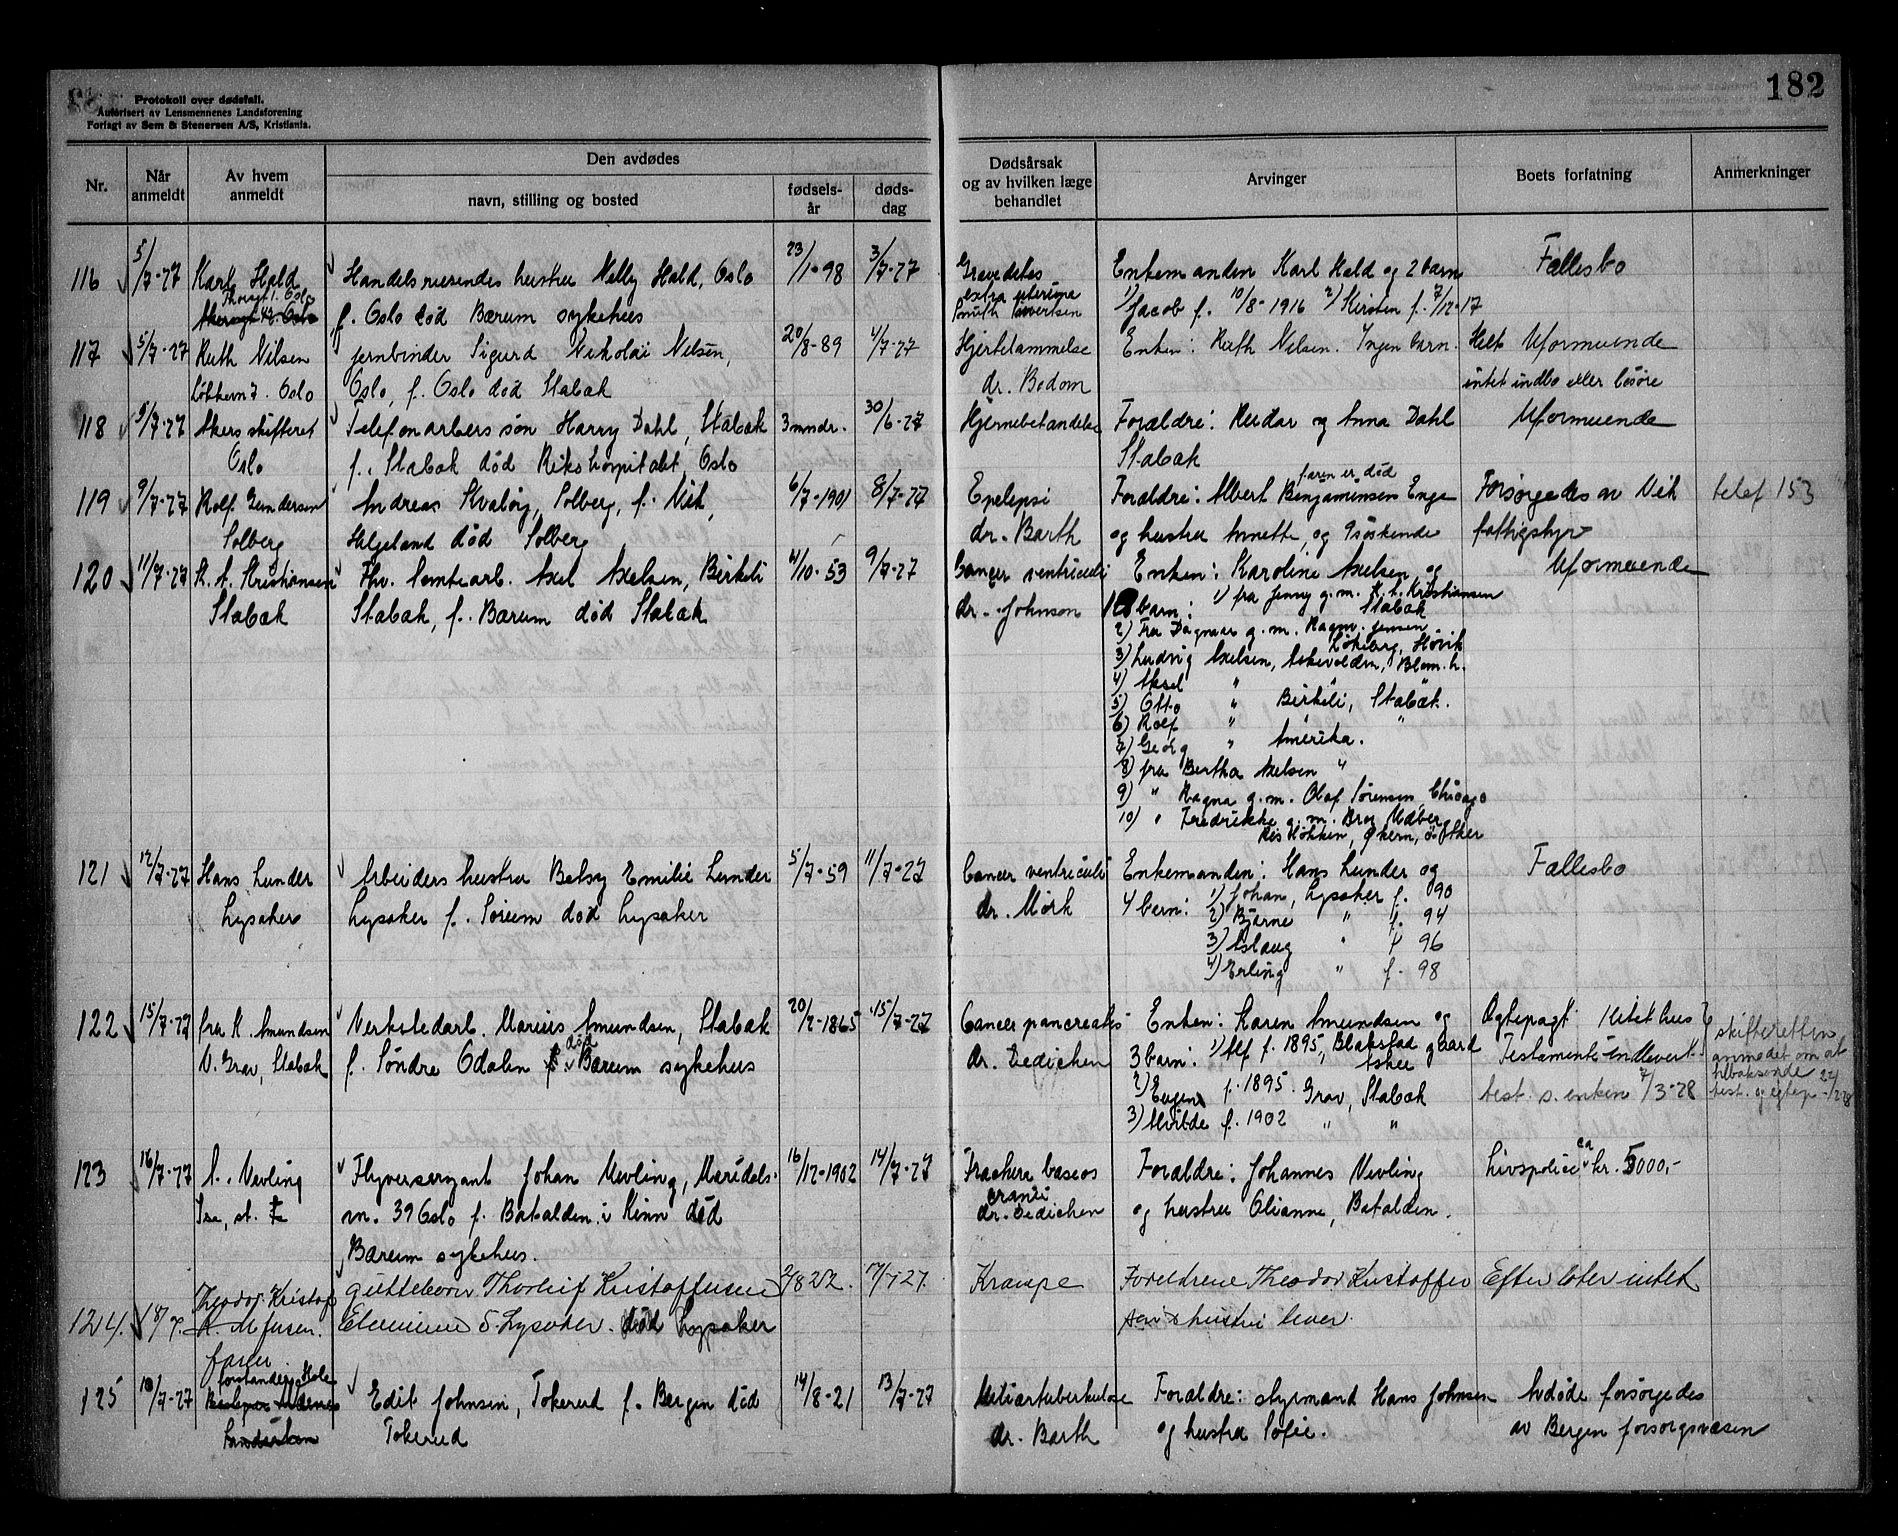 182
Protokoll over dødsfall.
Autorisert av Lensmennenes Landsforening
Forlagt av Sem & Stenersen A/S, Kristiania.
Nr.
Når anmeldt
Av hvem anmeldt
Den avdødes
navn, stilling og bosted
fødsels-år
døds-dag
Dødsårsak og av hvilken læge behandlet
Arvinger
Boets forfatning
Anmerkninger
116 5/7-27 Karl Hald Handelsreisendes hustru Nelly Hald, Oslo 23/1-98 3/7-27 Enkemanden Karl Hald og 2 barn Fællesbo
f. Oslo død Bærum sykehus extra uterina 1) Jacob f. 10/8-1916 2) Kirsten f. 7/12-17
117 5/7-27 Ruth Nilsen jernbinder Sigurd Nikolai Nilsen, 20/8-89 4/7-27 Hjertelammelse Enken: Ruth Nilsen. Ingen barn. Helt Uformuende
Oslo Oslo, f. Oslo død Stabæk dr. Bodom intet indbo eller løsøre
118 5/7-27 Akers skifteret Telefonarbeis søn Harry Dahl, Stabæk 3 mndr. 30/6-27 Hjernebetændelse Forældre: Reidar og Anna Dahl Uformuende
Oslo f. Stabæk død Rikshospitalet, Oslo Stabæk
faren er død
119 9/7-27 Rolf Gundersen Andreas Kvaløy, Solberg, f. Vik, 6/7-1901 8/7-27 Epelepsi Forældre: Albert Benjaminsen Enge Forsørgedes av Vik telef 153
Solberg Helgeland død Solberg dr. Barth og hustru Annette, og 9 søskende fattigstyr
120 11/7-27 K. A. Kristiansen Fhv. Tomtearb. Axel Axelsen, Birkeli 4/10-53 9/7-27 Cancer ventriculi Enken: Karoline Axelsen og Uformuende
Stabæk Stabæk, f. Bærum død Stabæk dr. Johnson 10 barn: 1) fru Jenny g.m. K. A. Kristiansen
Stabæk
2) Fru Dagmar g.m. Ragnv. Jensen
Løkeberg, Høvik
3) Ludvig Axelsen, Askevolden, Blom.h.
4) Aksel " "
5) Otto " Birkeli, Stabæk.
6) Rolf " " "
7) Georg " Amerika.
8) fru Bertha Axelsen "
9) " Ragna g.m. Olaf Sørensen, Chicago
10) " Fredrikke g.m. Bror Udberg
Økern, ø. Aker
121 12/7-27 Hans Lunder Arbeiders hustru Betsy Emilie Lunder 5/7-59 11/7-27 Cancer ventriculi Enkemanden: Hans Lunder og Fællesbo
Lysaker Lysaker f. Sørum død Lysaker dr. Mørk 4 barn: 1) Johan, Lysaker f. 90
2) Bjarne " f. 94
3) Aslaug " f 96
4) Erling " f. 98
122 15/7-27 fru K. Amundsen Verkstedarb. Marius Amundsen, Stabæk 20/2-1865 15/7-27 Cancer pancreatis Enken: Karen Amundsen og Ægtepagt. Litet hus skifteretten
N. Grav, Stabæk f. Søndre Odalen død Bærum sykehus dr. Dedichen 3 barn: 1) Alf f. 1895, Blakstad gaard Testamente indlevert anmodet om at
Asker
2) Eugen f. 1895. Grav, Stabæk test. s. enken 7/3-28 tilbakesende test. og egtep
3) Alvilde f. 1902 " "
123 16/7-27 A. Nevling Flyversergant Johan Nevling, Maridals- 16/12-1902 14/7-27 Fractura baseos Forældre: Johannes Nevling Livspolise ca kr. 5000,-
vn. 39 Oslo f. Batalden i Kinn død cranii
dr. Dedichen og hustru Olianne, Batalden.
Bærum sykehus.
124. 18/7. Theodor Kristof guttebarn Thorleif Kristoffersen 2/8 22. 17/7 27. Krampe Foreldrene Theodor Kristoffer Efterlater intet
fersen. Lysaker. død Lysaker sen & hustru lever.
faren
125 18/7-27 forstanderske Edit Johnsen, Tokerud f. Bergen død 14/8-21 13/7-27 Miliærtuberkulose Forældre: styrmand Hans Johnsen Avdøde forsørgedes
Tokerud dr. Barth og hustru Sofie. av Bergen forsorgsvæsen